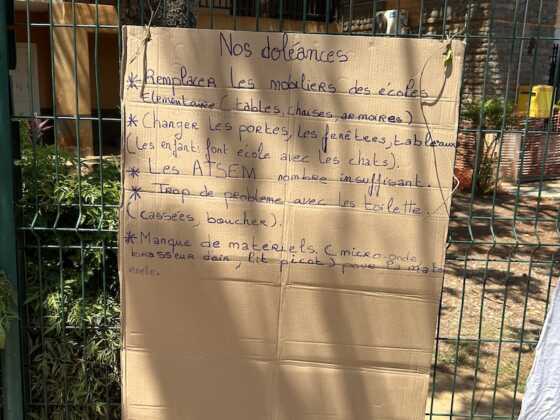 Nos doléances
* Remplacer les mobiliers des écoles
Elementaire (tables, chaises, armoires)
* Changer les portes, les fenêtres, tableaux
(les enfants font école avec les chats).
* Les ATSEM nombre insuffisant.
* Trop de probleme avec les toilette.
(cassées, boucher).
* Manque de materiels. (micro-onde
brasseur dair, lit picot) pour la mater
nelle.